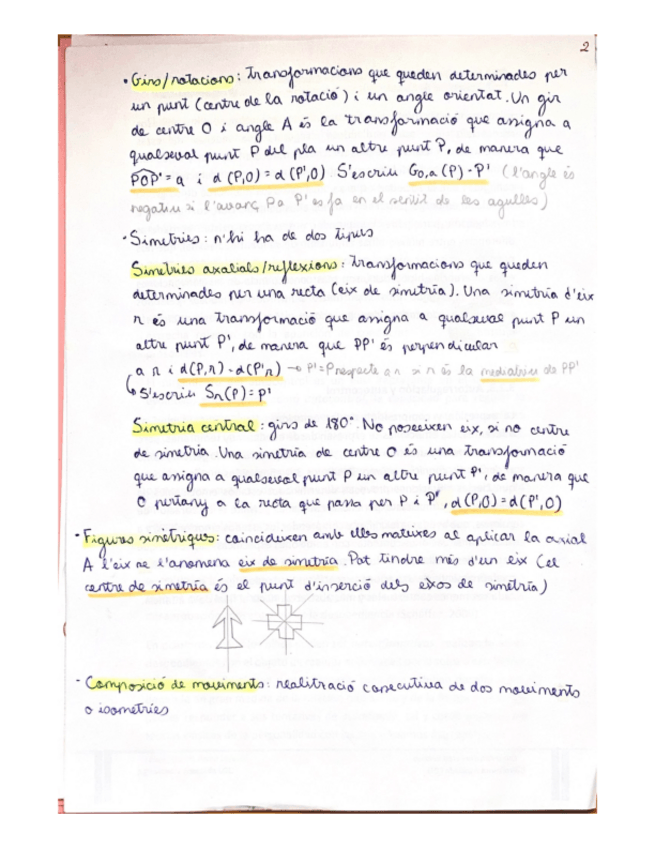 2
• Girs/rotacions: transformacions que queden determinades per
un punt (centre de la rotació) i un angle orientat. Un gir
de centre O i angle A és la transformació que assigna a
qualseval punt P del pla un altre punt P, de manera que
POP' = a i d(P,O) = d(P',O) S'escriu Go,a (P) = P' (l'angle és
negatiu si l'avanç P a P' es fa en el sentit de les agulles)
· Simetries: n'hi ha de dos tipus
Simetries axials/reflexions: transformacions que queden
determinades per una recta (eix de simetria). Una simetria d'eix
r és una transformació que assigna a qualseval punt P un
altre punt P', de manera que PP' és perpendicular
a r i d(P,r) = d(P',r) → P' = P respecte a r si r és la mediatriu de PP'
↳ S'escriu Sr(P) = P'
Simetria central: girs de 180°. No poseeixen eix, si no centre
de simetria. Una simetria de centre O és una transformació
que assigna a qualseval punt P un altre punt P', de manera que
O pertany a la recta que passa per P i P', d(P,O) = d(P',O)
· Figures simètriques: coincideixen amb elles mateixes al aplicar la axial
A l'eix se l'anomena eix de simetria. Pot tindre més d'un eix (el
centre de simetria és el punt d'inserció dels eixos de simètria)
· Composició de moviments: realització consecutiva de dos moviments
o isometries